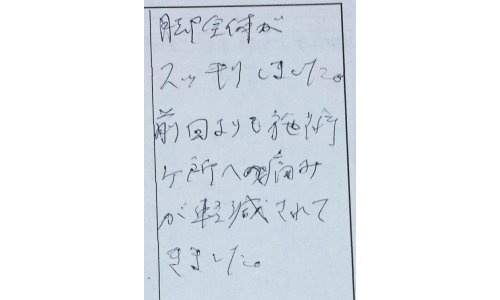 脚全体が
スッキリしました。
前回よりも施術
ケ所への痛み
が軽減されて
きました。